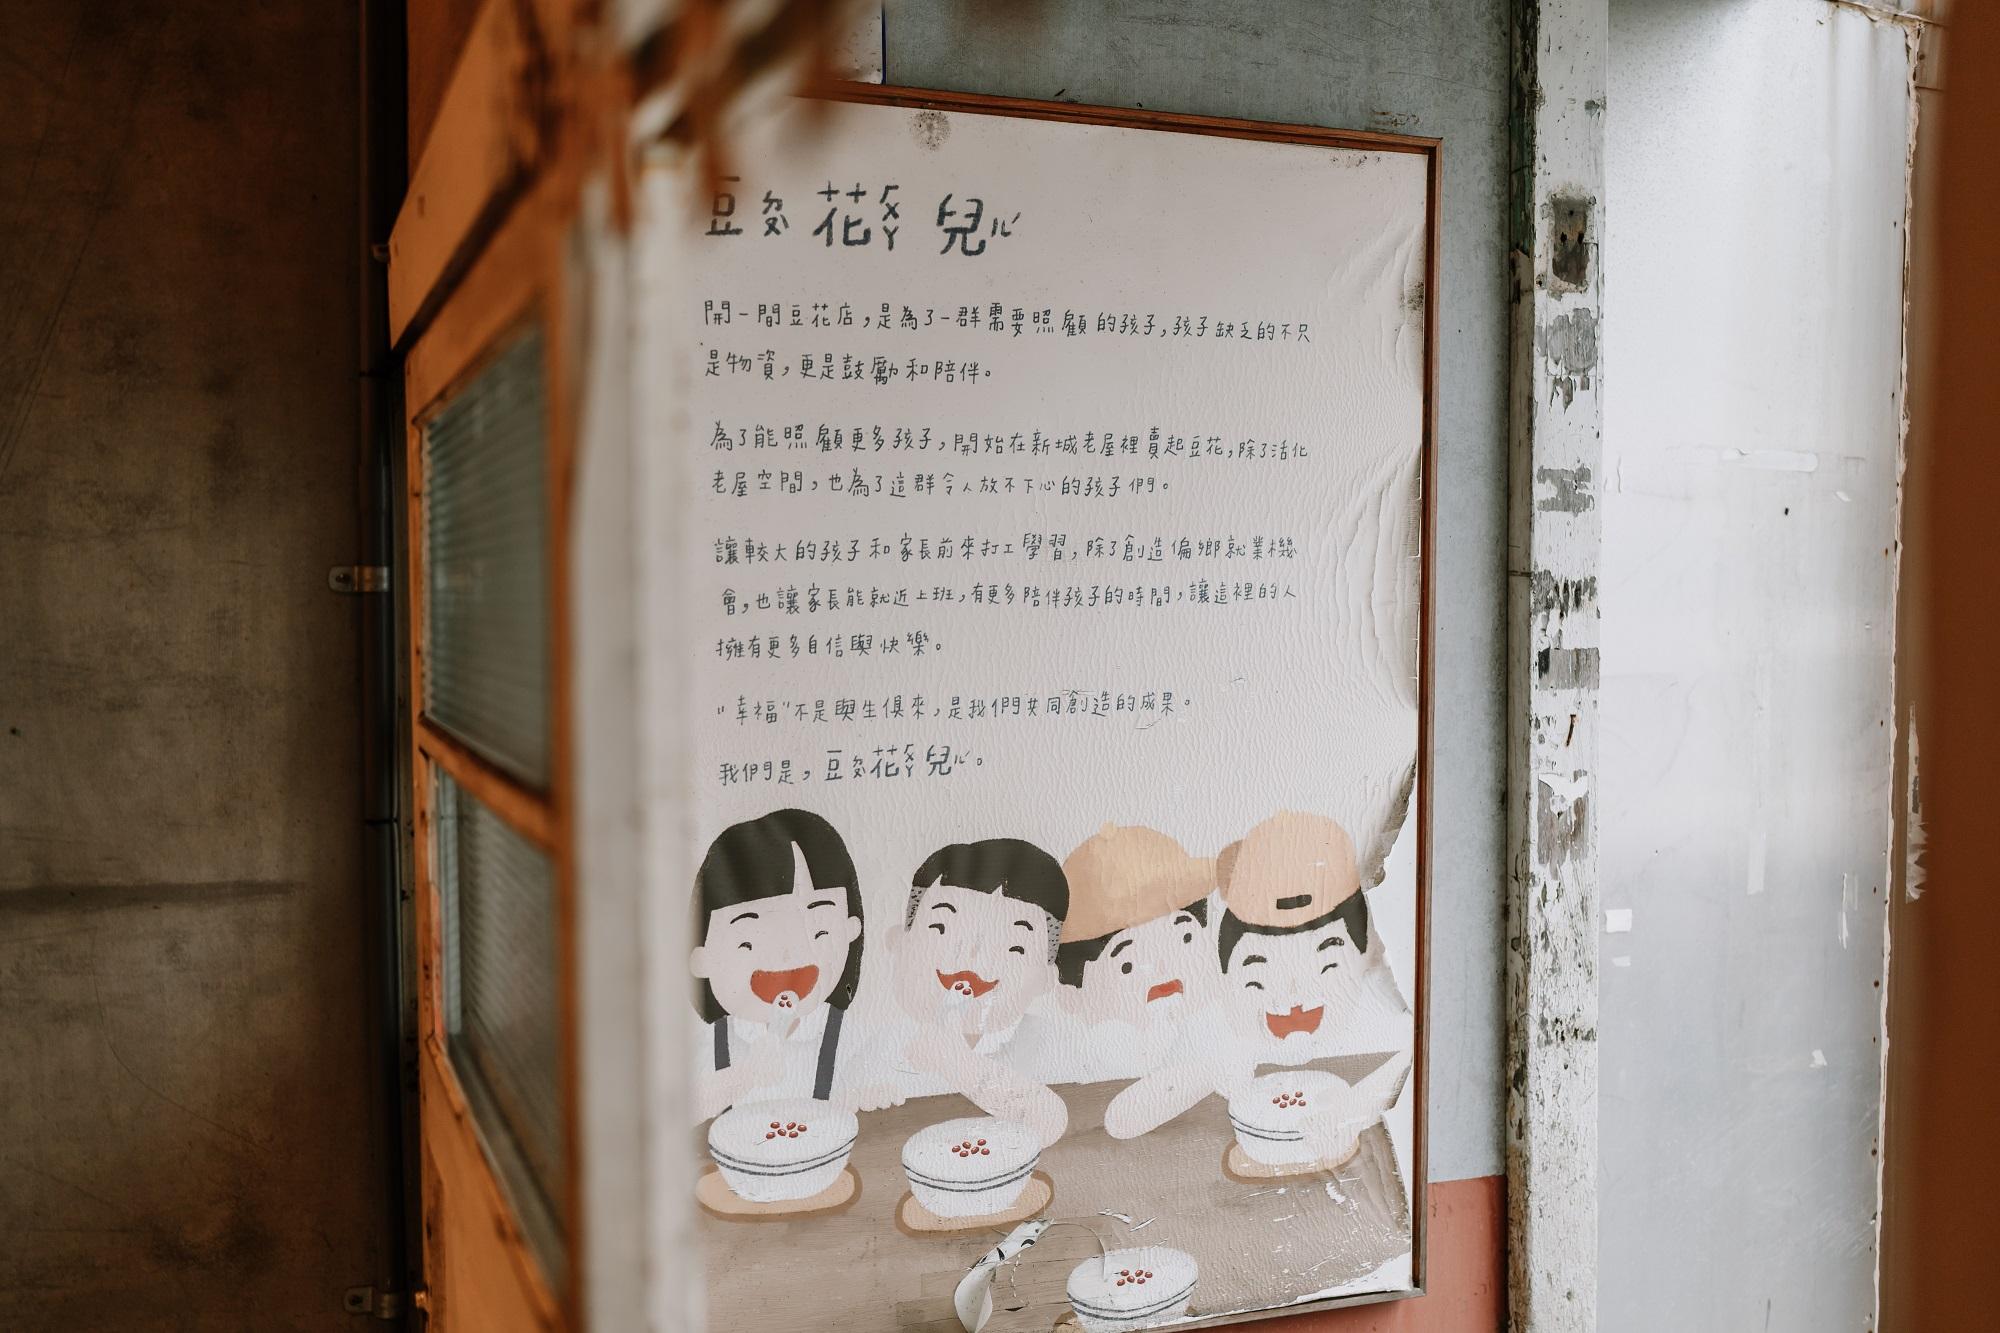 豆ㄉㄡ 花ㄏㄨㄚ 兒ㄦ
開一間豆花店，是為了一群需要照顧的孩子，孩子缺乏的不只
是物資，更是鼓勵和陪伴。
為了能照顧更多孩子，開始在新城老屋裡賣起豆花，除了活化
老屋空間，也為了這群令人放不下心的孩子們。
讓較大的孩子和家長前來打工學習，除了創造偏鄉就業機
會，也讓家長能就近上班，有更多陪伴孩子的時間，讓這裡的人
擁有更多自信與快樂。
"幸福"不是與生俱來，是我們共同創造的成果。
我們是，豆ㄉㄡ花ㄏㄨㄚ兒ㄦ。